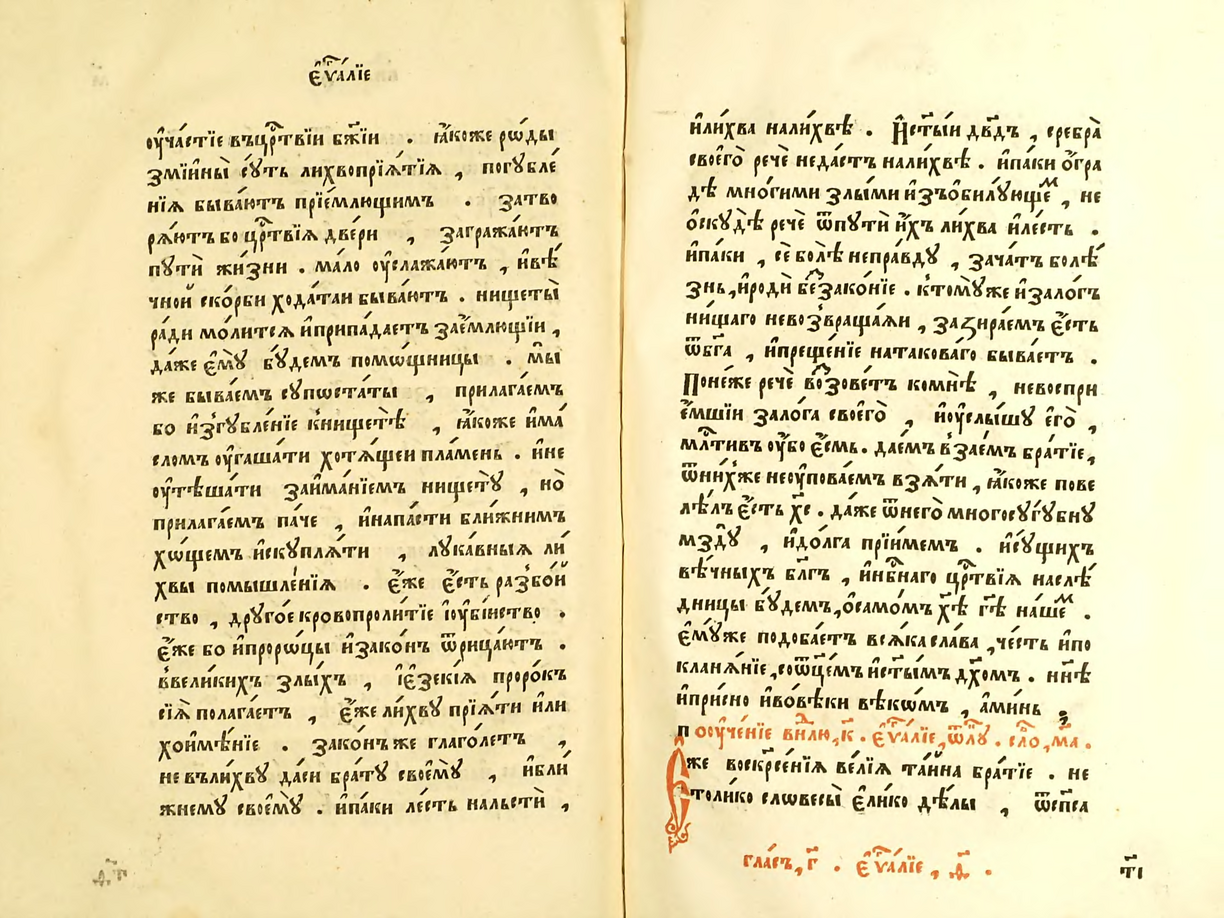 є҆ѵⷢ҇а́лїе
оу҆ча́стїе въцрⷭ҇твїи бж҃їи . ꙗ҆́коже рѡ́ды
змїи҆ны̀ сꙋ́ть лихвопрїѧ́тїѧ , погꙋбле́
нїѧ быва́ютъ прїе́млющимъ . затво
рѧ́ютъ бо црⷭ҇твїѧ двери , загражда́ютъ
пꙋтѝ жи́зни . ма́ло оу҆слажа́ютъ , и҆вѣ́
чной ско́рби хода́таи быва́ютъ . нищеты̀
ра́ди мо́литсѧ и҆припа́даетъ зае́млющїи ,
да́же є҆мꙋ̀ бꙋ́демъ помѡ́щницы . мы̀
же быва́емъ сꙋпѡста́ты , прилага́емъ
бо и҆згꙋбле́нїе книщетѣ̀ , ꙗ҆́коже и҆ма́
сломъ оу҆гаша́ти хотѧ́щеи пла́мень . и҆не
оу҆тѣша́ти займа́нїемъ нищетꙋ̀ , но̀
прилага́емъ па́че , и҆напа́сти бли́жнимъ
хѡ́щемъ и҆скꙋплѧ́ти , лꙋка́вныѧ ли́
хвы помышле́нїѧ . є҆́же є҆́сть разбо́й
ство , дрꙋго́е кровопроли́тїе и҆оу҆бі́нство .
є҆́же бо и҆проро́цы и҆зако́н ѿрица́ютъ .
ввели́кихъ злы́хъ , і҆є́зекїѧ проро́къ
сїѧ̀ полага́етъ , є҆́же ли́хвꙋ прїѧ́ти и҆лѝ
хоимѣ́нїе . зако́нъ же глаго́летъ ,
не въли́хвꙋ да́си бра́тꙋ своемꙋ̀ , и҆бли́
жнемꙋ̀ своемꙋ̀ . и҆па́ки ле́сть нальстѝ ,
и҆ли́хва нали́хвѣ . И҆ст҃ы́и дв҃дъ , сребра̀
своего̀ речѐ неда́стъ нали́хвѣ . и҆па́ки ѻ҆гра
дѣ̀ мно́гими злы́ми и҆зъѻ҆билꙋ́ющеⷨ , не
ѻ҆скꙋдѣ̀ речѐ ѿпꙋтѝ и҆́хъ ли́хва и҆ле́сть .
и҆па́ки , сѐ болѣ̀ непра́вдꙋ , зача́тъ болѣ́
знь , и҆родѝ беззако́нїе . ктомꙋ́же и҆зало́гъ
ни́щаго невозвраща́ѧи , зазира́емъ є҆́сть
ѿбг҃а , и҆преще́нїе натакова́го быва́етъ .
Поне́же речѐ возове́тъ комнѣ̀ , невоспри
е́мшїи зало́га своего̀ , и҆оу҆слы́шꙋ є҆го̀ ,
млⷭ҇тивъ оу҆́бо є҆́смь . дае́мъ вза́емъ бра́тїе ,
ѿни́хже неоу҆пова́емъ взѧ́ти , ꙗ҆́коже пове
лѣ́лъ є҆́сть хⷭ҇е . да́же ѿнего̀ многосꙋгꙋ́бнꙋ
мздꙋ̀ , и҆до́лга прїи́мемъ . и҆сꙋ́щихъ
вѣ́чныхъ бл҃гъ , и҆нбⷭ҇наго црⷭ҇твїѧ наслѣ́
дницы бꙋ́демъ , ѻ҆само́мъ хⷭ҇ѣ гдⷭ҇ѣ на́шеⷨ .
є҆мꙋ́же подоба́етъ всѧ́ка сла́ва , че́сть и҆по
кланѧ́нїе , соѿц҃е́мъ и҆ст҃ы́мъ дх҃омъ . нн҃ѣ
и҆при́сно и҆вовѣ́ки вѣко́мъ , а҆ми́нь .
Пооу҆че́нїе внⷣлю , к҃ . є҆ѵⷢ҇а́лїе , ѿлꙋⷦ . сло̀ , м҃а .
Є҆́же воскрⷭ҇е́нїѧ ве́лїѧ та́йна бра́тїе . не
то́лико словесы̀ є҆ли́ко дѣ́лы , ѿсп҃са
гла́съ , г҃ . є҆ѵⷢ҇а́лїе , д҃ .
т҃і